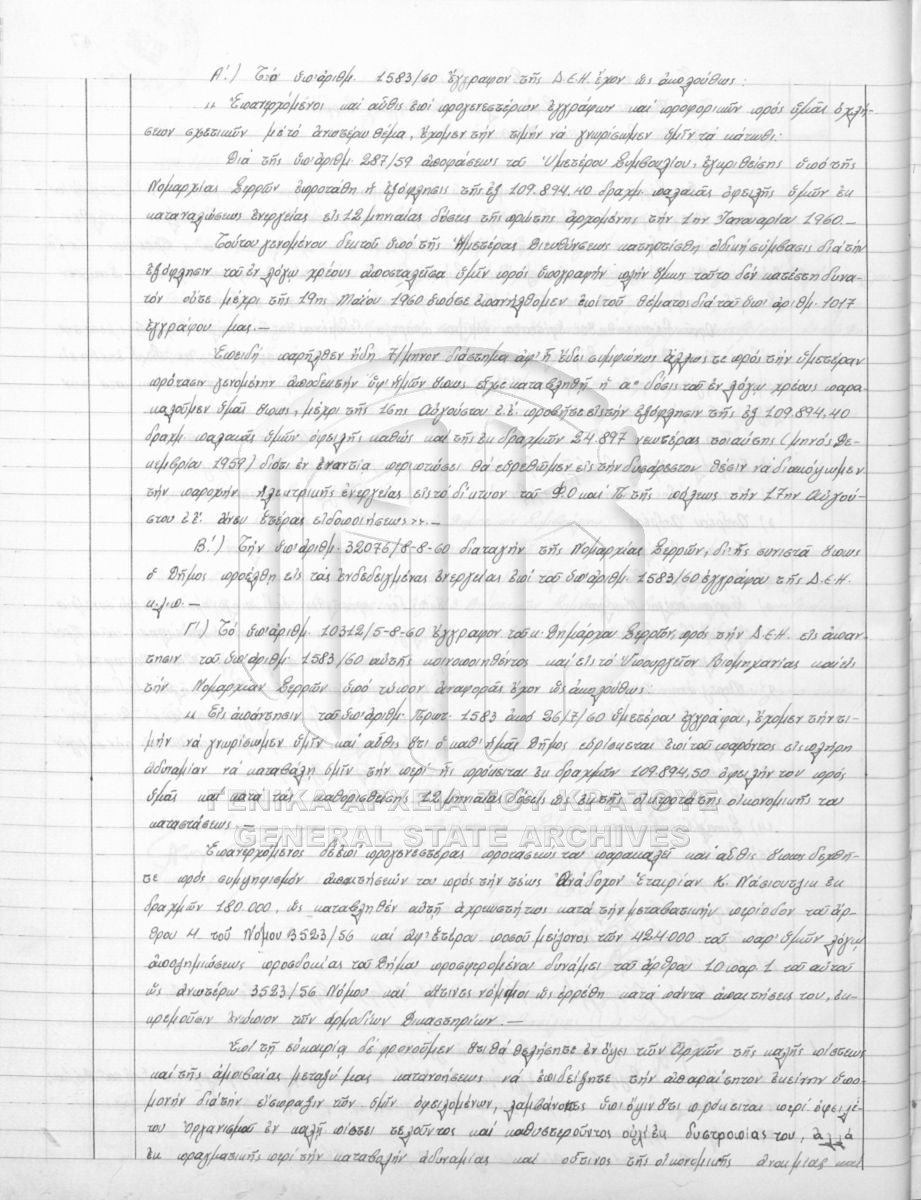 Α'.) Τό ὑπ' ἀριθμ. 1583/60 ἔγγραφον τῆς Δ.Ε.Η. ἔχον ὡς ἀκολούθως:
" Ἐπανερχόμενοι καί αὖθις ἐπί προγενεστέρων ἐγγράφων καί προφορικῶν πρός ὑμᾶς ὀχλή-
σεων σχετικῶν μέ τό ἀνωτέρω θέμα, ἔχομεν τήν τιμήν νά γνωρίσωμεν ὑμῖν τά κάτωθι:
Διά τῆς ὑπ' ἀριθμ. 287/59 ἀποφάσεως τοῦ Ὑμετέρου Συμβουλίου, ἐγκριθείσης ὑπό τῆς
Νομαρχίας Σερρῶν ἐπροτάθη ἡ ἐξόφλησις τῆς ἐξ 109.894.40 δραχμ. παλαιᾶς ὀφειλῆς ὑμῶν ἐκ
καταναλώσεως ἐνεργείας εἰς 12 μηνιαίας δόσεις τῆς πρώτης ἀρχομένης τήν 1ην Ἰανουαρίου 1960.—
Τούτου γενομένου δεκτοῦ ὑπό τῆς Ἡμετέρας Διευθύνσεως κατηρτίσθη εἰδική σύμβασις διά τήν
ἐξόφλησιν τοῦ ἐν λόγω χρέους ἀποσταλεῖσα ὑμῖν πρός ὑπογραφήν πλήν ὅμως τοῦτο δέν κατέστη δυνα-
τόν οὔτε μέχρι τῆς 19ης Μαΐου 1960 ὁπότε ἐπανήλθομεν ἐπί τοῦ θέματος διά τοῦ ὑπ' ἀριθμ. 1017
ἐγγράφου μας.—
Ἐπειδή παρῆλθεν ἤδη 7/μηνον διάστημα ἀφ' ἧ ἔδει συμφώνως ἄλλως τε πρός τήν ὑμετέραν
πρότασιν γενομένην ἀποδεκτήν ὑφ' ἡμῶν ὅπως εἶχε καταβληθῆ ἡ α' δόσις τοῦ ἐν λόγω χρέους παρα-
καλοῦμεν ὑμᾶς ὅπως, μέχρι τῆς 16ης Αὐγούστου ἐ.ἔ. προβῆτε εἰς τήν ἐξόφλησιν τῆς ἐξ 109.894.40
δραχμ. παλαιᾶς ὑμῶν ὀφειλῆς καθώς καί τῆς ἐκ δραχμῶν 24.897 νεωτέρας τοιαύτης (μηνός Δε-
κεμβρίου 1959) διότι ἐν ἐναντία περιπτώσει θά εὑρεθῶμεν εἰς τήν δυσάρεστον θέσιν νά διακόψωμεν
τήν παροχήν ἠλεκτρικῆς ἐνεργείας εἰς τό δίκτυον τοῦ Φ.Ο καί Π τῆς πόλεως τήν 17ην Αὐγού-
στου ἐ.ἔ. ἄνευ ἑτέρας εἰδοποιήσεως".—
Β'.) Τήν ὑπ' ἀριθμ. 32076/8-8-60 διαταγήν τῆς Νομαρχίας Σερρῶν, δι' ἧς συνιστᾶ ὅπως
ὁ Δῆμος προέλθη εἰς τάς ἐνδεδειγμένας ἐνεργείας ἐπί τοῦ ὑπ' ἀριθμ. 1583/60 ἐγγράφου τῆς Δ.Ε.Η.
κ.λ.π. —
Γ'.) Τό ὑπ' ἀριθμ. 10312/5-8-60 ἔγγραφον τοῦ κ. Δημάρχου Σερρῶν, πρός τήν Δ.Ε.Η. εἰς ἀπάν-
τησιν τοῦ ὑπ' ἀριθμ. 1583/60 αὐτῆς κοινοποιηθέντος καί εἰς τό Ὑπουργεῖον Βιομηχανίας καί εἰς
τήν Νομαρχίαν Σερρῶν ὑπό τύπον ἀναφορᾶς ἔχον ὡς ἀκολούθως:
" Εἰς ἀπάντησιν τοῦ ὑπ' ἀριθμ. Πρωτ. 1583 ἀπό 26/7/60 ὑμετέρου ἐγγράφου, ἔχομεν τήν τι-
μήν νά γνωρίσωμεν ὑμῖν καί αὖθις ὅτι ὁ καθ' ἡμᾶς Δῆμος εὑρίσκεται ἐπί τοῦ παρόντος εἰς πλήρη
ἀδυναμίαν νά καταβάλη ὑμῖν τήν περί ἧς πρόκειται ἐκ δραχμῶν 109.894,50 ὀφειλήν του πρός
ὑμᾶς καί κατά τάς καθορισθείσης 12 μηνιαίας δόσεις ὡς ἐκ τῆς οἰκτροτάτης οἰκονομικῆς του
καταστάσεως.
ΓΕΝΙΚΑ ΑΡΧΕΙΑ ΤΟΥ ΚΡΑΤΟΥΣ
GENERAL STATE ARCHIVES
Ἐπανερχόμενος δέ ἐπί προγενεστέρας προτάσεώς του παρακαλεῖ καί αὖθις ὅπως δεχθῆ-
τε πρός συμψηφισμόν ἀπαιτήσεών του πρός τήν τέως Ἀνάδοχον Ἑταιρίαν Κ. Νάσιουτζικ ἐκ
δραχμῶν 180.000, ὡς καταβληθέν αὐτῆ ἀχρεωστήτως κατά τήν μεταβατικήν περίοδον τοῦ ἄρ-
θρου 4 τοῦ Νόμου 3523/56 καί ἀφ' ἑτέρου ποσοῦ μείζονος τῶν 424.000 τοῦ παρ' ὑμῶν λόγω
ἀποζημιώσεως προσδοκίας τοῦ Δήμου προσφερομένου δυνάμει τοῦ ἄρθρου 10 παρ. 1 τοῦ αὐτοῦ
ὡς ἀνωτέρω 3523/56 Νόμου καί αἵτινες νόμιμοι ὡς ἐρρέθη κατά πάντα ἀπαιτήσεις του, ἐκ-
κρεμοῦσιν ἐνώπιον τῶν ἁρμοδίων Δικαστηρίων.—
Ἐπί τῆ εὐκαιρία δέ φρονοῦμεν ὅτι θά θελήσητε ἐν ὄψει τῶν ἀρχῶν τῆς καλῆς πίστεως
καί τῆς ἀμοιβαίας μεταξύ μας κατανοήσεως νά ἐπιδείξητε τήν ἀπαραίτητον ἐκείνην ὑπο-
μονήν διά τήν εἴσπραξιν τῶν ὑμῖν ὀφειλομένων, λαμβάνοντες ὑπ' ὄψιν ὅτι πρόκειται περί ὀφειλέ-
του Ὀργανισμοῦ ἐν καλῆ πίστει τελοῦντος καί καθυστεροῦντος οὐχί ἐκ δυστροπίας του, ἀλλά
ἐκ πραγματικῆς περί τήν καταβολήν ἀδυναμίας καί οὗτινος τῆς οἰκονομικῆς ἀναιμίας καί